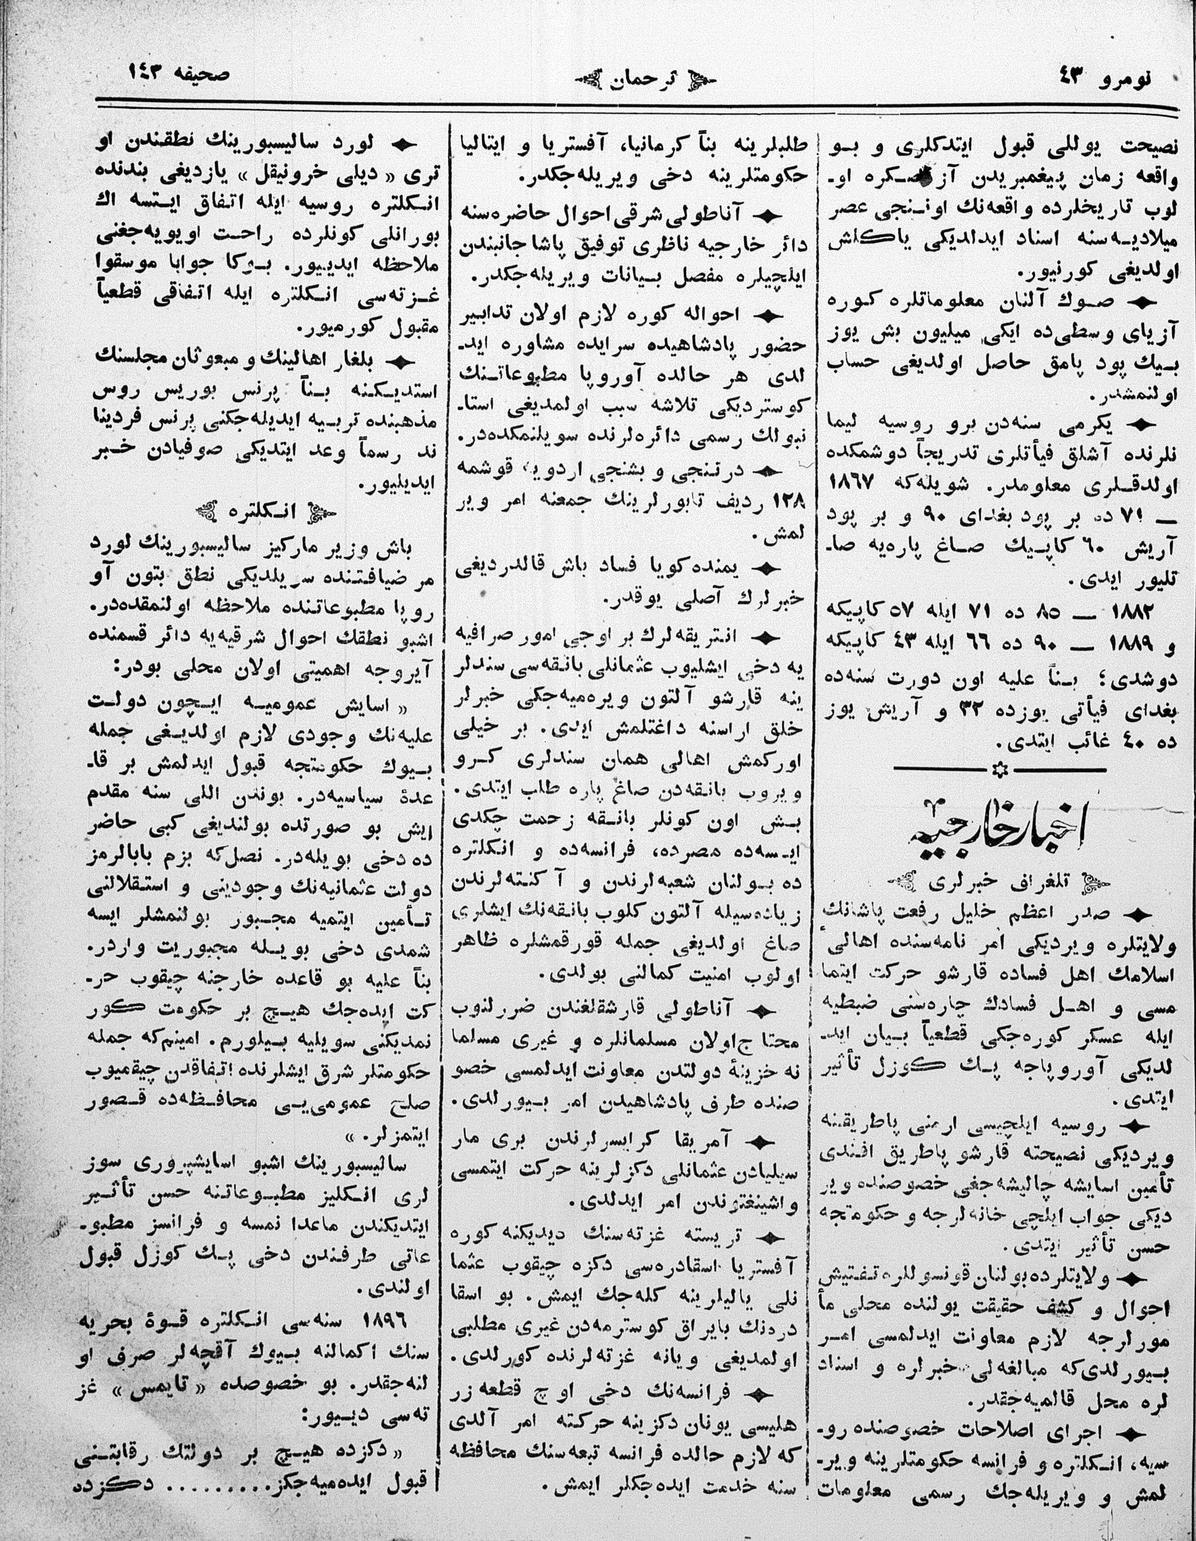 نومرو ٤٣
ترجمان
صحیفه ١٤٣
نصیحت یوللی قبول ایتدکلری و بـو
واقعه زمان پیغمبریدن آز صـکره او۔
لوب تاریخلرده واقعه‌نك اونـنجی عصر
میلادیـه‌سنه اسناد ایدلدیکی یاڭلش
اولدیغی کورنیور.
صـوك آلنان معلوماتلره کـوره
آزیای وسطی‌ده ایکی میلیون بش یوز
بـیك پود پامق حاصل اولدیغی حساب
اولنمشدر.
یکرمی سنه‌دن برو روسیه لیما
نلرنده آشلق فیأتلری تدریجاً دوشمکده
اولدقـلری معلومدر. شویله‌که ١٨٦٧
— ٧١ ده بر پود بغدای ٩٠ و بر پود
آریش ٦٠ کاپـیك صـاغ پاره‌یه صا۔
تلیور ایدی.
١٨٨٢ — ٨٥ ده ٧١ ایله ٥٧ کاپیکه
و ١٨٨٩ — ٩٠ ده ٦٦ ایله ٤٣ کاپیکه
دوشدی؛ بـناً علیه اون دورت سنه‌ده
بغدای فیأتی یوزده ٣٢ و آریش یوز
ده ٤٠ غائب ایتدی.
اخبار خارجیه
تلغراف خبرلری
صدر اعظم خلیل رفعت پاشانك
ولایتلره ویردیکی امر نامه‌سنده اهالیٔ
اسلامك اهل فساده قارشو حرکت ایتما
مسی و اهـل فسادك چاره‌سنی ضبطیه
ایله عسکر کوره‌جکی قطعیاً بـیان ایـد
لدیکی آوروپاجه پـك کوزل تأثیر
ایتدی.
روسیه ایلچیسی ارمنی پاطریقنه
ویردیکی نصیحته قارشو پاطریق افندی
تأمین اسایشه چالیشه‌جغی خصوصنده ویر
دیکی جواب ایلچی خانه‌لرجه و حکومتجه
حسن تأثیر ایتدی.
ولایتلرده بولنان قونسوللره تفـتیش
احوال و کشف حقیقت یولنده محلی مأ
مورلرجه لازم معاونت ایدلمسی امـر
بـیورلدی‌که مبالغه‌لی خبرلره و اسناد
لره محل قالمیه‌جقدر.
اجرای اصلاحات خصوصنده رو۔
سیه، انـکلتره و فرانسه حکومتلرینه ویر۔
لمش و ویریله‌جك رسمی معلومات
طلبلرینه بناً کرمانیا، آفستریا و ایتالیا
حکومتلرینه دخی ویریله‌جکدر.
آناطولی شرقی احوال حاضره‌سنه
دائر خارجیه ناظری توفیق پاشا جانبندن
ایلچیلره مفصل بـیانات ویریله‌جکدر.
احواله کوره لازم اولان تدابیر
حضور پادشاهیده سرایده مشاوره ایدـ
لدی هر حالده آوروپا مطبوعاتـنك
کوستردیکی تلاشه سبب اولمدیغی استا۔
نبولك رسمی دائره‌لرنده سویلنمکده‌در.
درتنجی و بشنجی اردویه قوشمه
١٢٨ ردیف تابورلرینك جمعنه امر ویر
لمش.
یمنده کویا فساد باش قالدردیغی
خبرلرك آصلی یوقدر.
انتریقه‌لرك بر اوجی امور صرافیه
یه دخی ایشلیوب عثمانلی بانقه‌سی سندلر
ینه قارشو آلتون ویره‌میه‌جکی خبرلر
خلق اراسنه داغتلمش ایدی. بر خیلی
اورکمش اهالی همان سندلری کـرو
ویروب بانقه‌دن صاغ پاره طلب ایتدی.
بـش اون کونلر بانـقه زحمت چکدی
ایـسه‌ده مصرده، فرانسه‌ده و انکلتره
ده بـولنان شعبه‌لرندن و آکنته‌لرندن
زیاده‌سیله آلتون کلوب بانقه‌نك ایشلری
صاغ اولدیغی جمله قورقمشلره ظاهر
اولوب امنیت کمالنی بولدی.
آناطولی قارشقلغندن ضررلنوب
محتاج اولان مسلمانلره و غیری مسلما
نه خزینهٔ دولتدن معاونت ایدلمسی خصو
صنده طرف پادشاهیدن امر بـیورلدی.
آمریقا کرایسرلرندن بری مار
سیلیادن عثمانلی دکزلرینه حرکت ایتمسی
واشینغتوندن امر ایدلدی.
تریسته غزته‌سنك دیدیکنه کوره
آفستریا اسقادره‌سی دکزه چیقوب عثما
نلی یالیلرینه کله‌جك ایمش. بو اسقا
دره‌نك بایراق کوسترمه‌دن غیری مطلبی
اولمدیغی ویانه غزته‌لرنده کورلدی.
فرانسه‌نك دخی اوچ قطعه زر
هلیسی یونان دکزینه حرکته امر آلدی
که لازم حالده فرانسه تبعه‌سنك محافظه
سنه خدمت ایده‌جکلر ایمش.
لورد سالیسبورینك نطقندن او
تری « دیلی خرونیقل » یازدیغی بندنده
انـکلتره روسیه ایله اتـفاق ایـتسه اك
بورانلی کونلرده راحـت اویویه‌جغنی
ملاحظه ایدیـیور. بـوکا جوابا موسقوا
غـزته‌سی انـکلتره ایله اتـفاقی قطعیاً
مقبول کورمیور.
بلغار اهالینك و مبعوثان مجلسنك
استدیـکنه بـناً پرنس بوریس روس
مذهبنده تربـیه ایدیله‌جکنی پرنس فردینا
ند رسماً وعد ایتدیکی صوفیادن خـبر
ایدیلیور.
انـکلتره
باش وزیر مارکیز سالیسبورینك لورد
مر ضیافـتـنده سویلدیکی نطق بتون آو
روپا مطبوعاتـنده ملاحظه اولنمقده‌در.
اشبو نطقك احوال شرقیه‌یه دائر قسمنده
آیروجه اهمیتی اولان محلی بودر:
« اسایش عمومیـه ایـچون دولـت
علیه‌نك وجودی لازم اولدیـغی جمله
بـیوك حکومتجه قبول ایدلمش بر قا۔
عدهٔ سیاسیه‌در. بوندن اللی سنه مقدم
ایش بو صورتده بولندیغی کبی حاضر
ده دخی بویله‌در. نصل‌که بزم بابالرمز
دولت عثمانیه‌نك وجودینی و استـقلالنی
تـأمین ایتمیه مجـبور بولنمشلر ایسه
شمدی دخی بویـله مجبوریت واردر.
بناً علیه بو قاعده خارجنه چیقوب حر۔
کت ایده‌جك هیـچ بر حکومت کور
نمدیکنی سویلیه بـیلورم. امینم‌که جمله
حکومتلر شرق ایشلرنده اتـفاقدن چیقمیوب
صلح عمومی‌یـی محافـظه‌ده قـصور
ایتمزلر. »
سالیسبورینك اشبو اسایشپروری سوز
لری انـکلیز مطبـوعاتـنه حسن تأثـیر
ایتدیکندن ماعدا نمسه و فرانسز مطبو۔
عاتی طرفندن دخی پـك کوزل قبول
اولندی.
١٨٩٦ سنه‌سی انـکلتره قـوهٔ بحریه
سنك اکمالنه بـیوك آقچه‌لر صرف او
لنه‌جقدر. بو خصوصده « تایمس » غز
ته‌سی دیـیور:
« دکزده هیـچ بر دولتك رقابتـنی
قبول ایده‌میه‌جکز......... دکزده